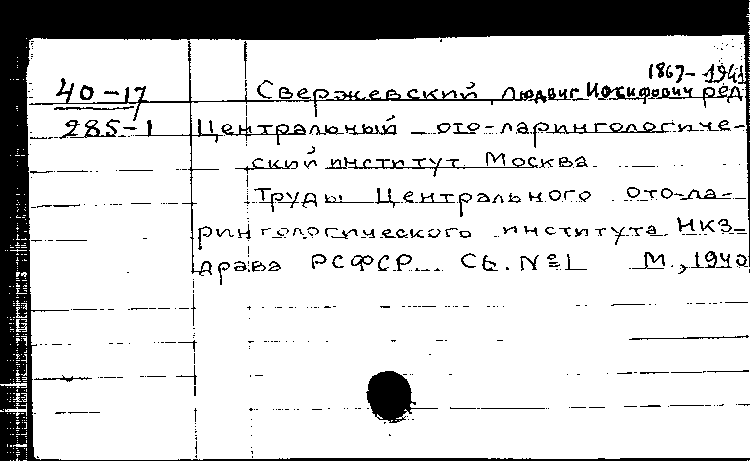 1867-1941
40-17 Свержевский, Людвиг Иосифович ред
285-1 Центральный ото-ларингологиче-
ский институт. Москва
Труды Центрального ото-ла-
рингологического института НКЗ-
драва РСФСР. Сб. №1 М., 1940